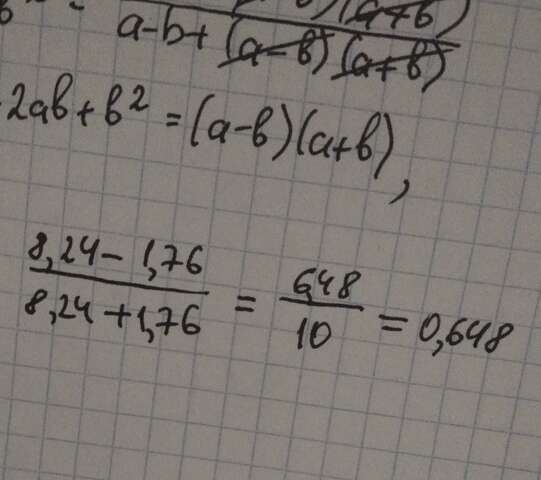 (a+b)
a-b+(a-b)(a+b)
2ab+b²=(a-b)(a+b),
8,24-1,76
8,24+1,76 = 6,48/10 = 0,648